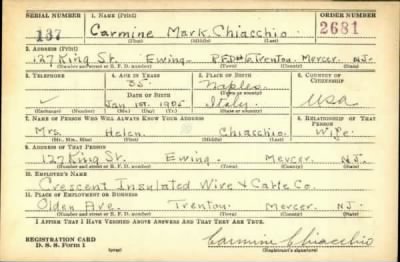 SERIAL NUMBER 1. NAME (Print) ORDER NUMBER
137 Carmine Mark Chiacchio 2681
(First) (Middle) (Last)
2. ADDRESS (Print)
127 King St. Ewing RFD#6 Trenton Mercer N.J.
(Number and street or R. F. D. number) (Town) (County) (State)
3. TELEPHONE 4. AGE IN YEARS 5. PLACE OF BIRTH 6. COUNTRY OF CITIZENSHIP
35 Naples
DATE OF BIRTH (Town or county)
Jan 1st 1905 Italy USA
(Exchange) (Number) (Mo.) (Day) (Yr.) (State or country)
7. NAME OF PERSON WHO WILL ALWAYS KNOW YOUR ADDRESS 8. RELATIONSHIP OF THAT PERSON
Mrs. Helen Chiacchio Wife
(Mr., Mrs., Miss) (First) (Middle) (Last)
9. ADDRESS OF THAT PERSON
127 King St. Ewing Mercer N.J.
(Number and street or R. F. D. number) (Town) (County) (State)
10. EMPLOYER'S NAME
Crescent Insulated Wire & Cable Co.
11. PLACE OF EMPLOYMENT OR BUSINESS
Olden Ave. Trenton Mercer N.J.
(Number and street or R. F. D. number) (Town) (County) (State)
I AFFIRM THAT I HAVE VERIFIED ABOVE ANSWERS AND THAT THEY ARE TRUE.
REGISTRATION CARD
D. S. S. Form 1 (over) Carmine Chiacchio
(Registrant's signature)